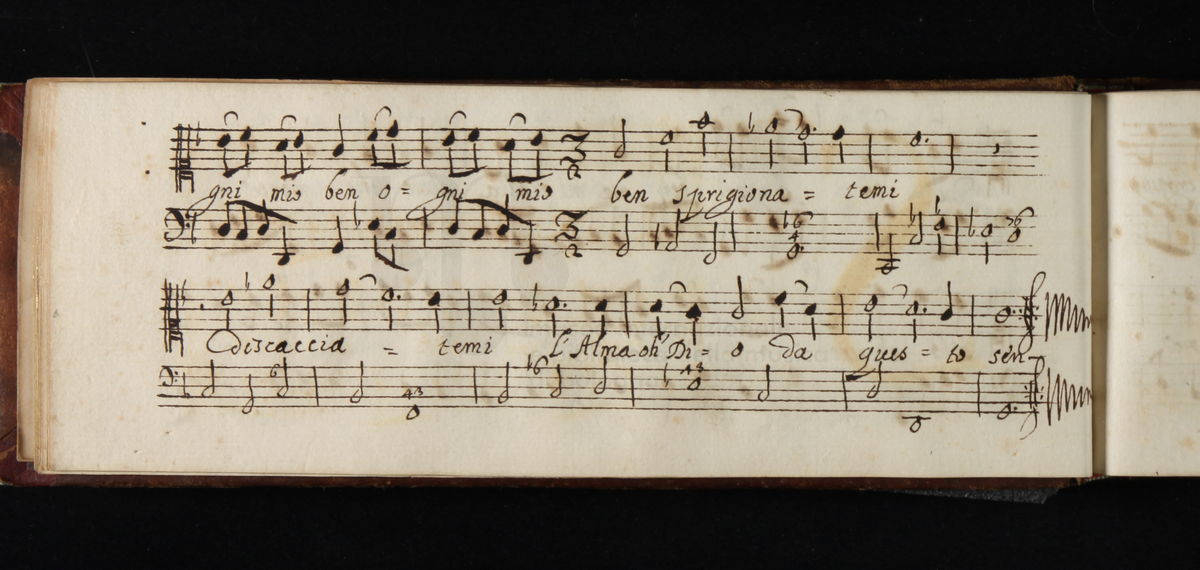 gni mio ben o = gni mio ben sprigiona = temi
3 2 3 2
b6 4 b6
discaccia = temi L'Alma oh Di = o da ques = to sen
6 43 b6 43